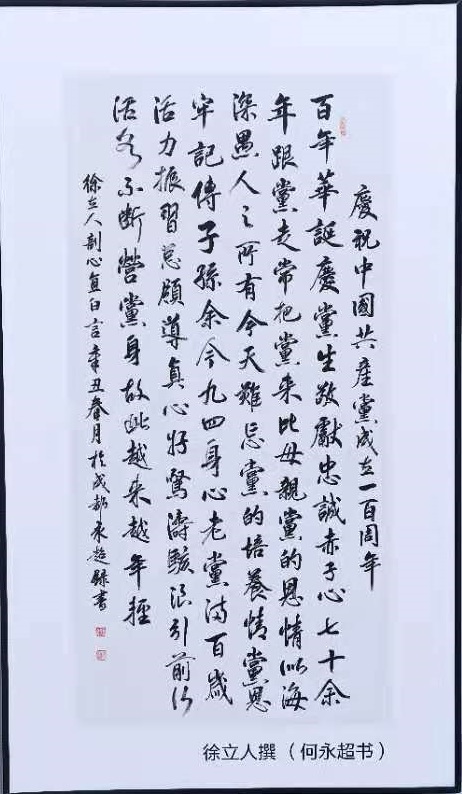 慶祝中國共產黨成立一百周年
百年華誕慶黨生敬獻忠誠赤子心七十余
年跟黨走常把黨来比母親黨的恩情似海
深愚人之所有今天難忘黨的培養情黨恩
牢記傳子孫余今九四身心老黨满百歲
活力振習总領導真心好驚濤駭浪引前行
活不斷營黨身故此越来越年輕
徐立人剖心直白言辛丑春月於成都永超録書
徐立人撰（何永超书）